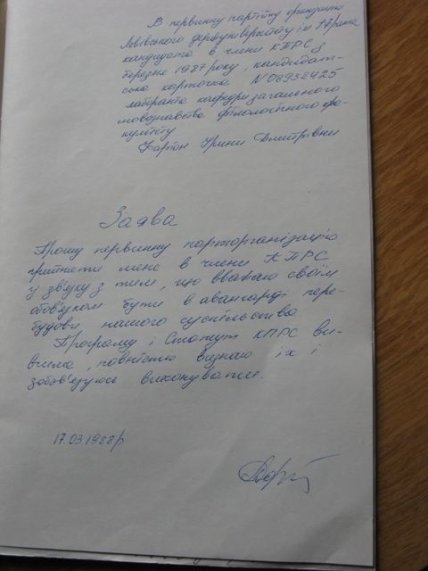 В первинну партійну організацію
Львівського держуніверситету ім. Франка
кандидата в члени КПРС з
березня 1987 року, кандидат-
ська карточка N08938425
лаборанта кафедри загального
мовознавства філологічного фа-
культету
Фартон Ірини Дмитрівни
Заява
Прошу первинну парторганізацію
прийняти мене в члени КПРС
у звязку з тим, що вважаю своїм
обов'язком бути в авангарді пере-
будови нашого суспільства.
Програму і Статут КПРС ви-
вчила, повністю визнаю їх і
зобов'язуюсь виконувати.
17.03.1988р